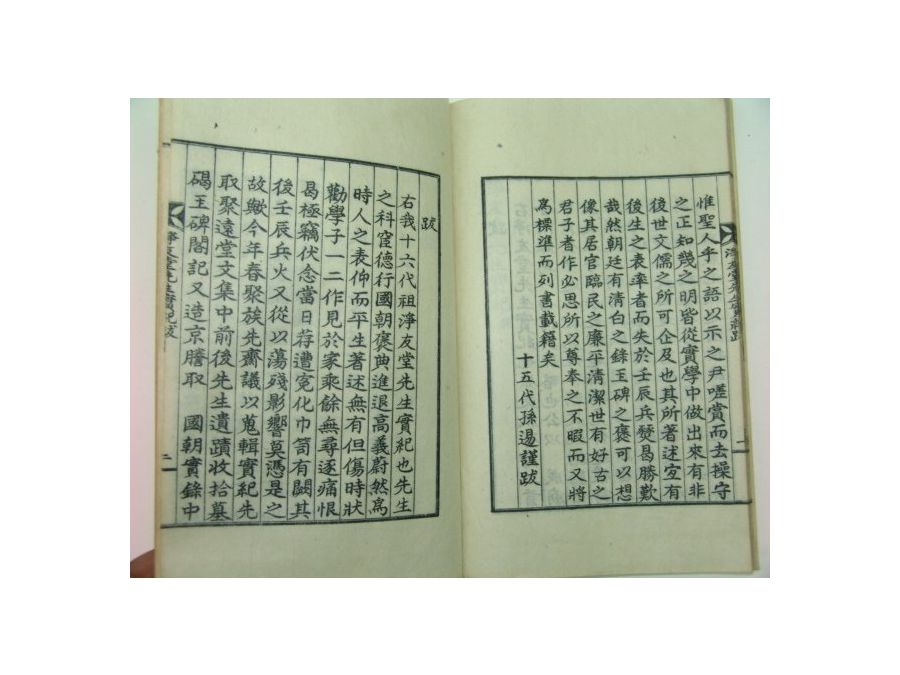 惟聖人乎之語以示之尹嗟賞而去操守
之正知幾之明皆從實學中做出來有非
後世文儒之所可企及也其所著述宜有
後生之表率者而失於壬辰兵燹曷勝歎
哉然朝廷有清白之錄玉碑之褒可以想
像其居官臨民之廉平清潔世有好古之
君子者作必思所以尊奉之不暇而又將
爲標準而列書載籍矣
十五代孫湯謹跋
跋
右我十六代祖淨友堂先生實紀也先生
之科宦德行國朝褒典進退高義蔚然爲
時人之表仰而平生著述無有但傷時狀
勸學子一二作見於家乘餘無尋逐痛恨
曷極竊伏念當日荐遭寃化巾笥有闕其
後壬辰兵火又從以蕩殘影響莫憑是之
故歟今年春聚族先齋議以蒐輯實紀先
取聚遠堂文集中前後先生遺蹟收拾墓
碣玉碑閣記又造京謄取 國朝實錄中
淨友堂先生實紀跋
二